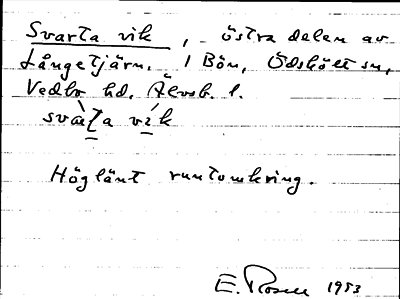 Svarta vik, östra delen av
Långetjärn. i Bön, Ödskölt sn,
Vedbo hd, Älvsb. l.
svàrta vík
Höglänt runtomkring.
E. Rosell 1953